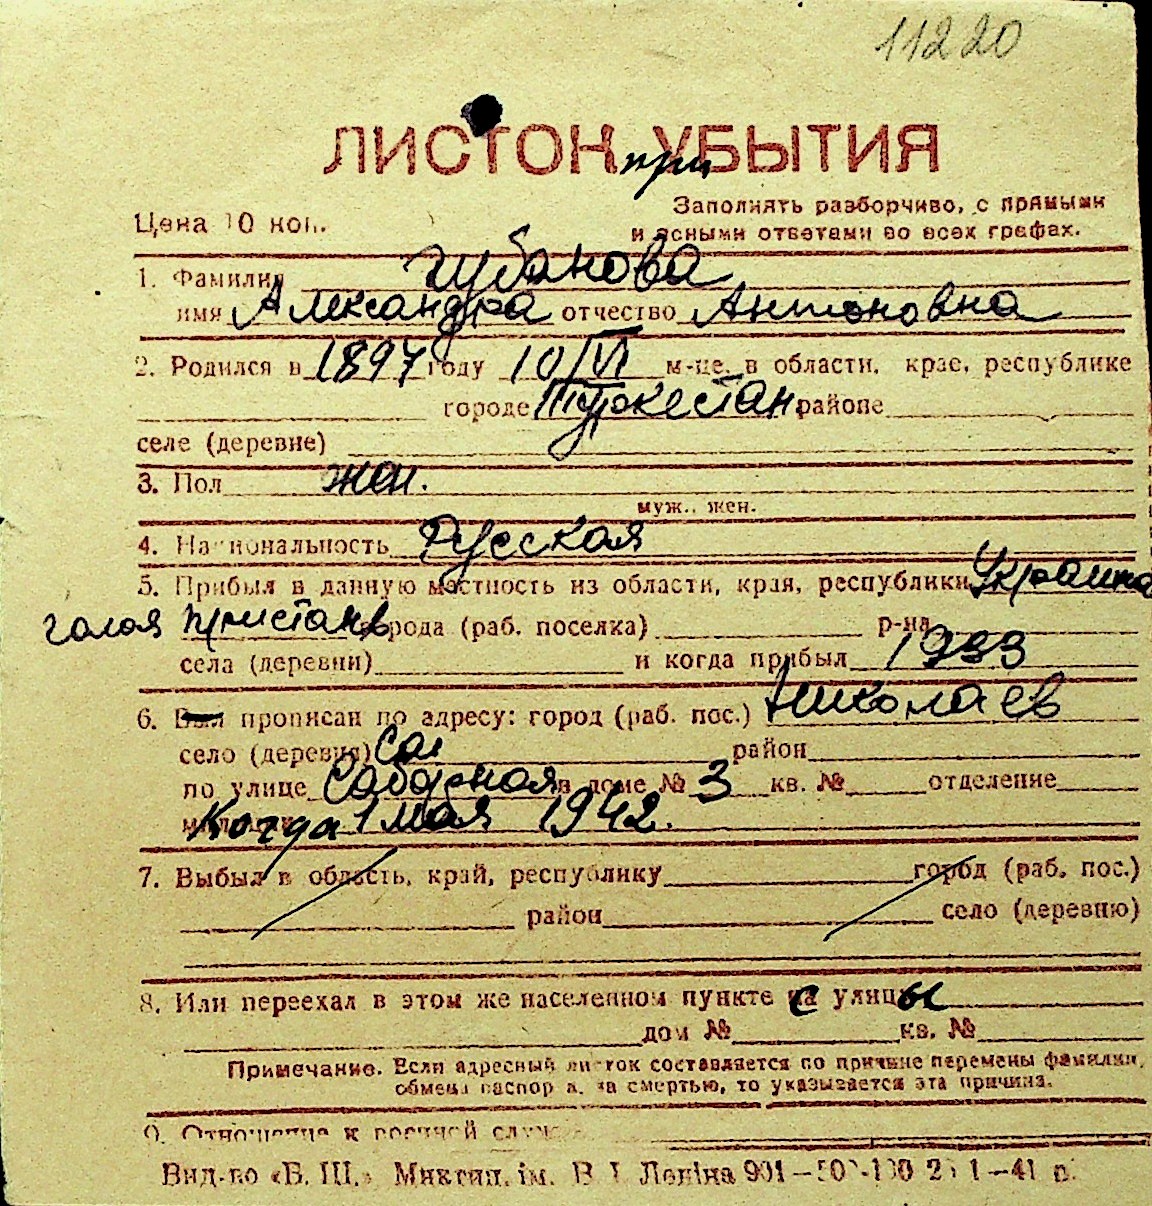 11220
ЛИСТОК при УБЫТИЯ
Цена 10 коп.
Заполнять разборчиво, с прямыми
и ясными ответами во всех графах.
1. Фамилия Губанова
имя Александра отчество Антоновна
2. Родился в 1897 году 10/VI м-це, в области, крае, республике
городе Туркестан районе
селе (деревне)
3. Пол жен.
муж., жен.
4. Национальность Русская
5. Прибыл в данную местность из области, края, республики Украина
голая пристань города (раб. поселка) р-на
села (деревни) и когда прибыл 1933
6. Был прописан по адресу: город (раб. пос.) Николаев
село (деревня) район
по улице Соборная в доме № 3 кв. № отделение
Когда 1 мая 1942.
7. Выбыл в область, край, республику город (раб. пос.)
район село (деревню)
8. Или переехал в этом же населенном пункте с улицы
дом № кв. №
Примечание. Если адресный листок составляется по причине перемены фамилии,
обмена паспорта, за смертью, то указывается эта причина.
9. Отношение к военной
Вид-во «Б. Ш.» Миктип. ім. В. І. Леніна 901 41 р.